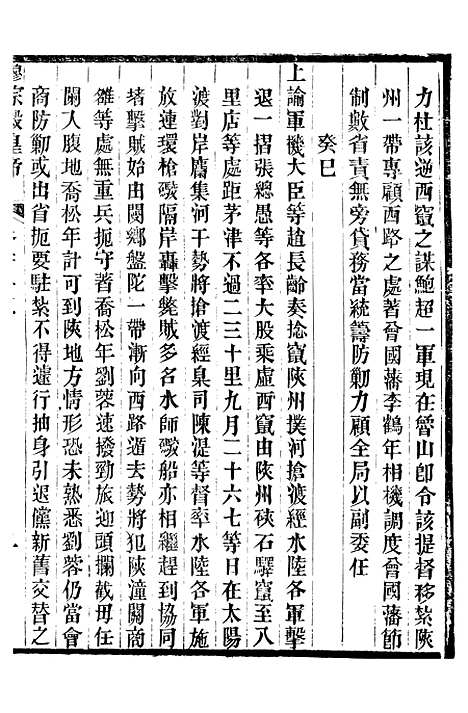 力杜該逆西竄之謀鮑超一軍現在曾山卽令該提督移紮陝
州一帶專顧西路之處著曾國藩李鶴年相機調度曾國藩節
制數省責無旁貸務當統籌防勦力顧全局以副委任
癸巳
上諭軍機大臣等趙長齡奏捻竄陝州撲河搶渡經水陸各軍擊
退一摺張總愚等各率大股乘虛西竄由陝州硤石驛竄至八
里店等處距茅津不過二三十里九月二十六七等日在太陽
渡對岸麕集河干勢將搶渡經臬司陳湜等督率水陸各軍施
放連環槍礮隔岸轟擊斃賊多名水師礮船亦相繼趕到協同
堵擊賊始由閿鄉盤陀一帶漸向西路遁去勢將犯陝潼關商
雒等處無重兵扼守著喬松年劉蓉速撥勁旅迎頭攔截毋任
闌入腹地喬松年計可到陝地方情形恐未熟悉劉蓉仍當會
商防勦或出省扼要駐紮不得遽行抽身引退儻新舊交替之
穆宗毅皇帝